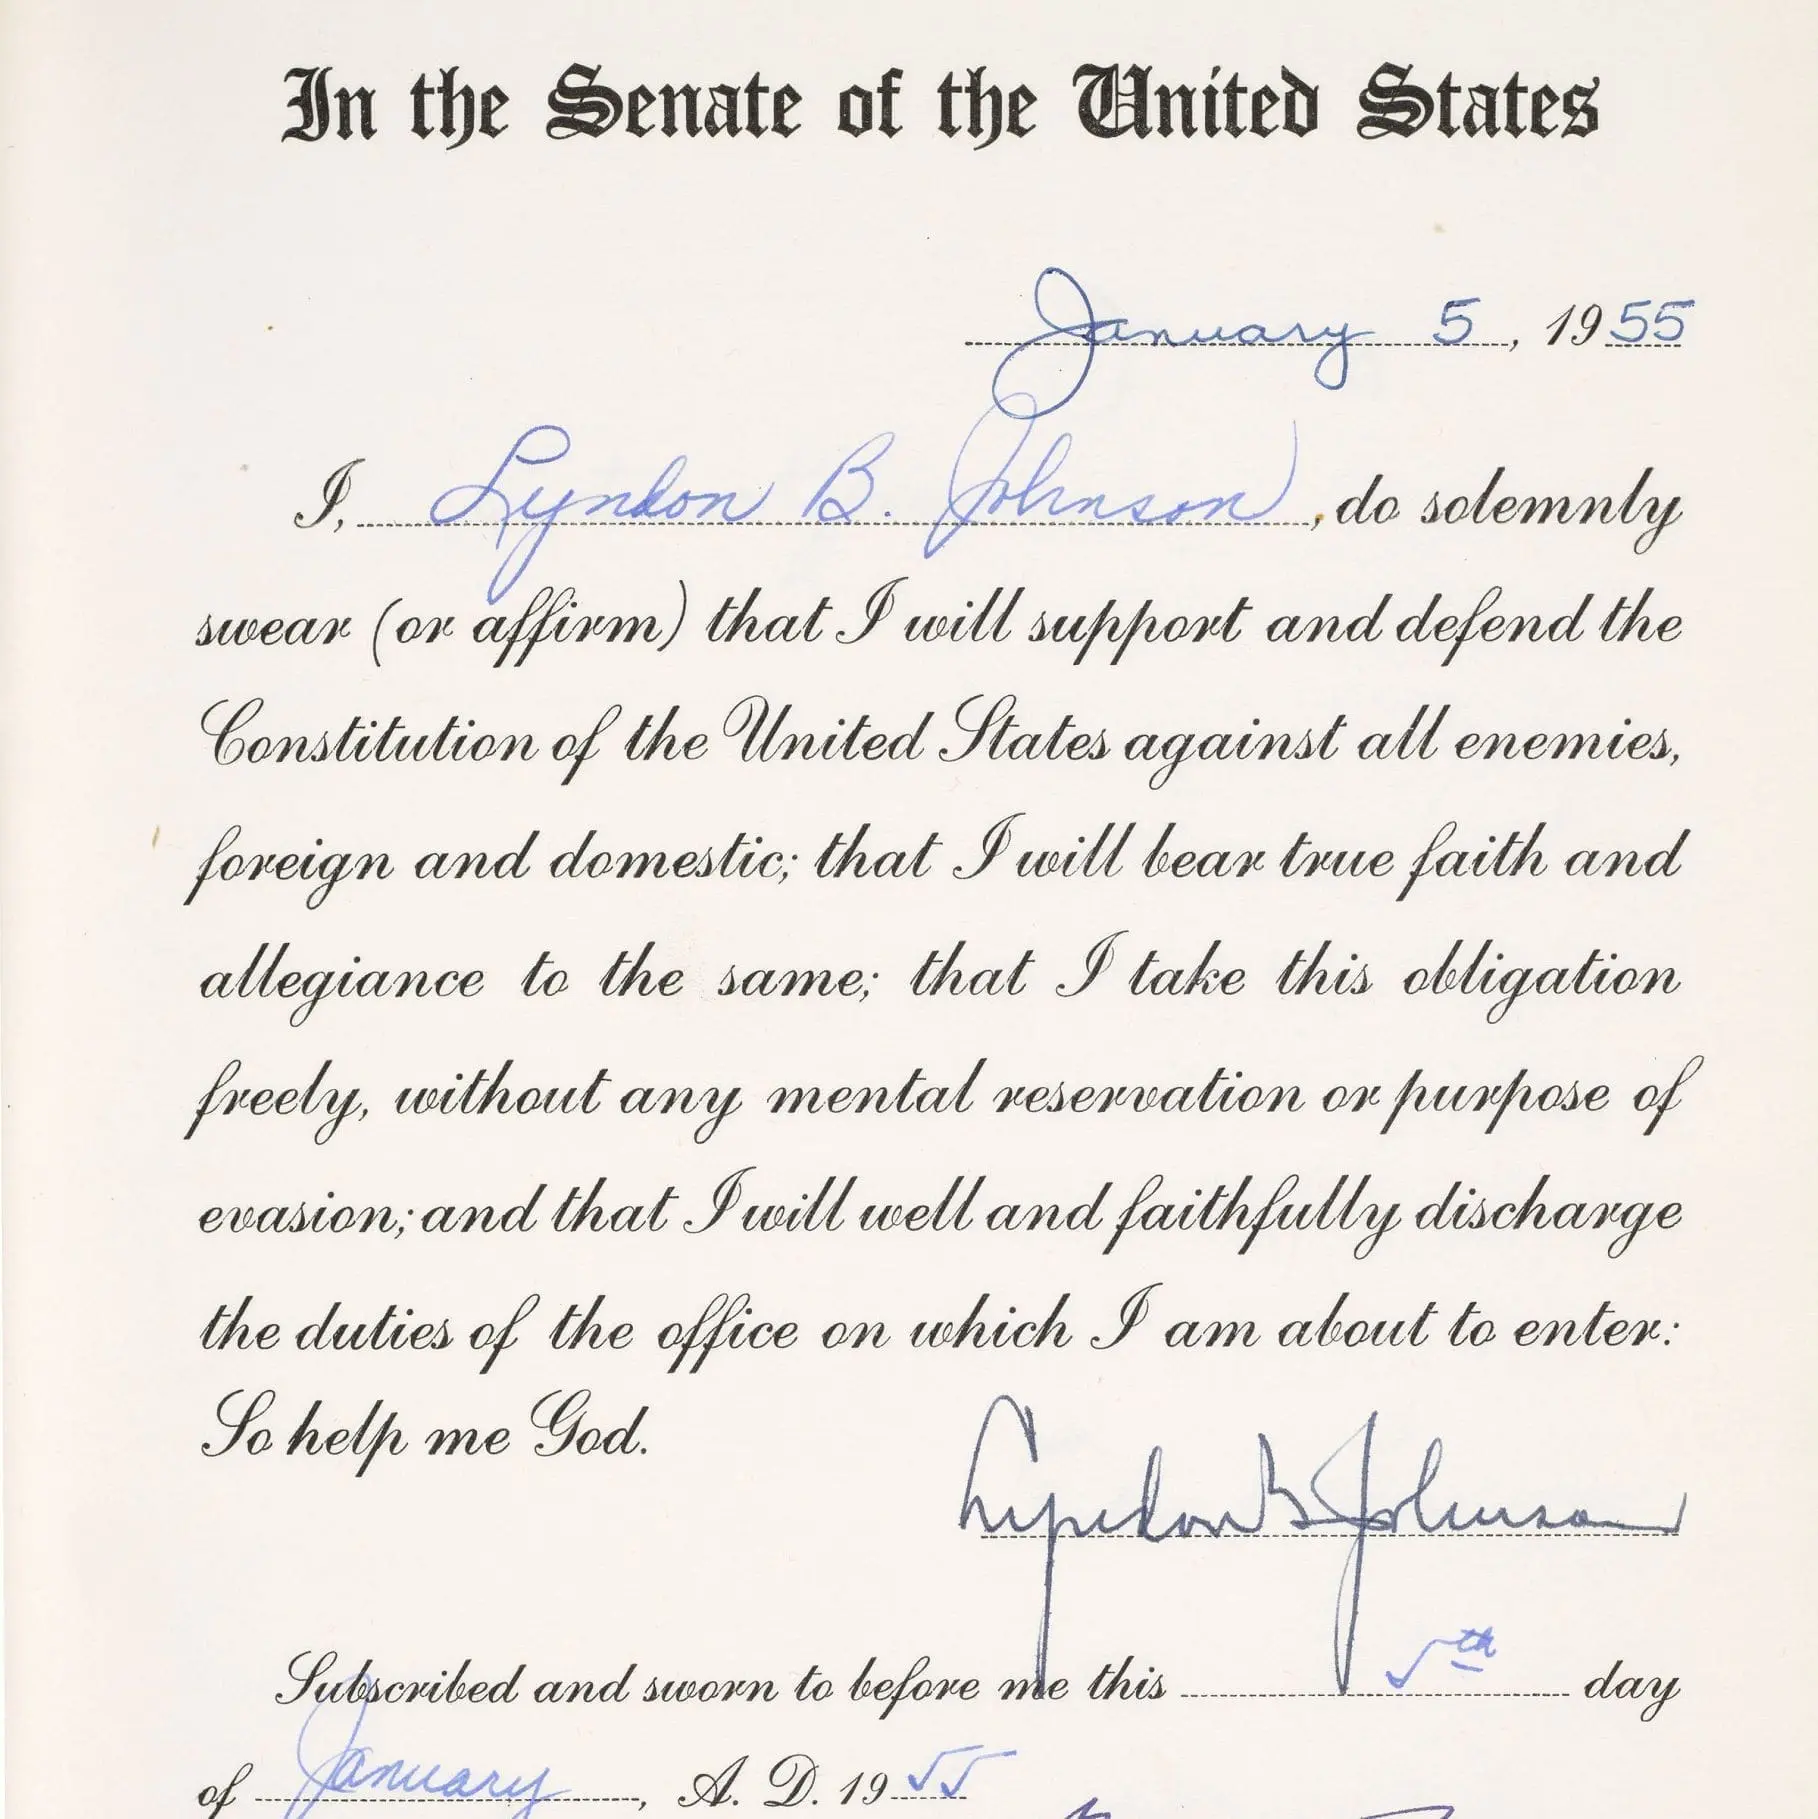 In the Senate of the United States
January 5, 1955
I, Lyndon B. Johnson, do solemnly
swear (or affirm) that I will support and defend the
Constitution of the United States against all enemies,
foreign and domestic; that I will bear true faith and
allegiance to the same; that I take this obligation
freely, without any mental reservation or purpose of
evasion; and that I will well and faithfully discharge
the duties of the office on which I am about to enter:
So help me God.
Lyndon B Johnson
Subscribed and sworn to before me this 5th day
of January, A. D. 1955